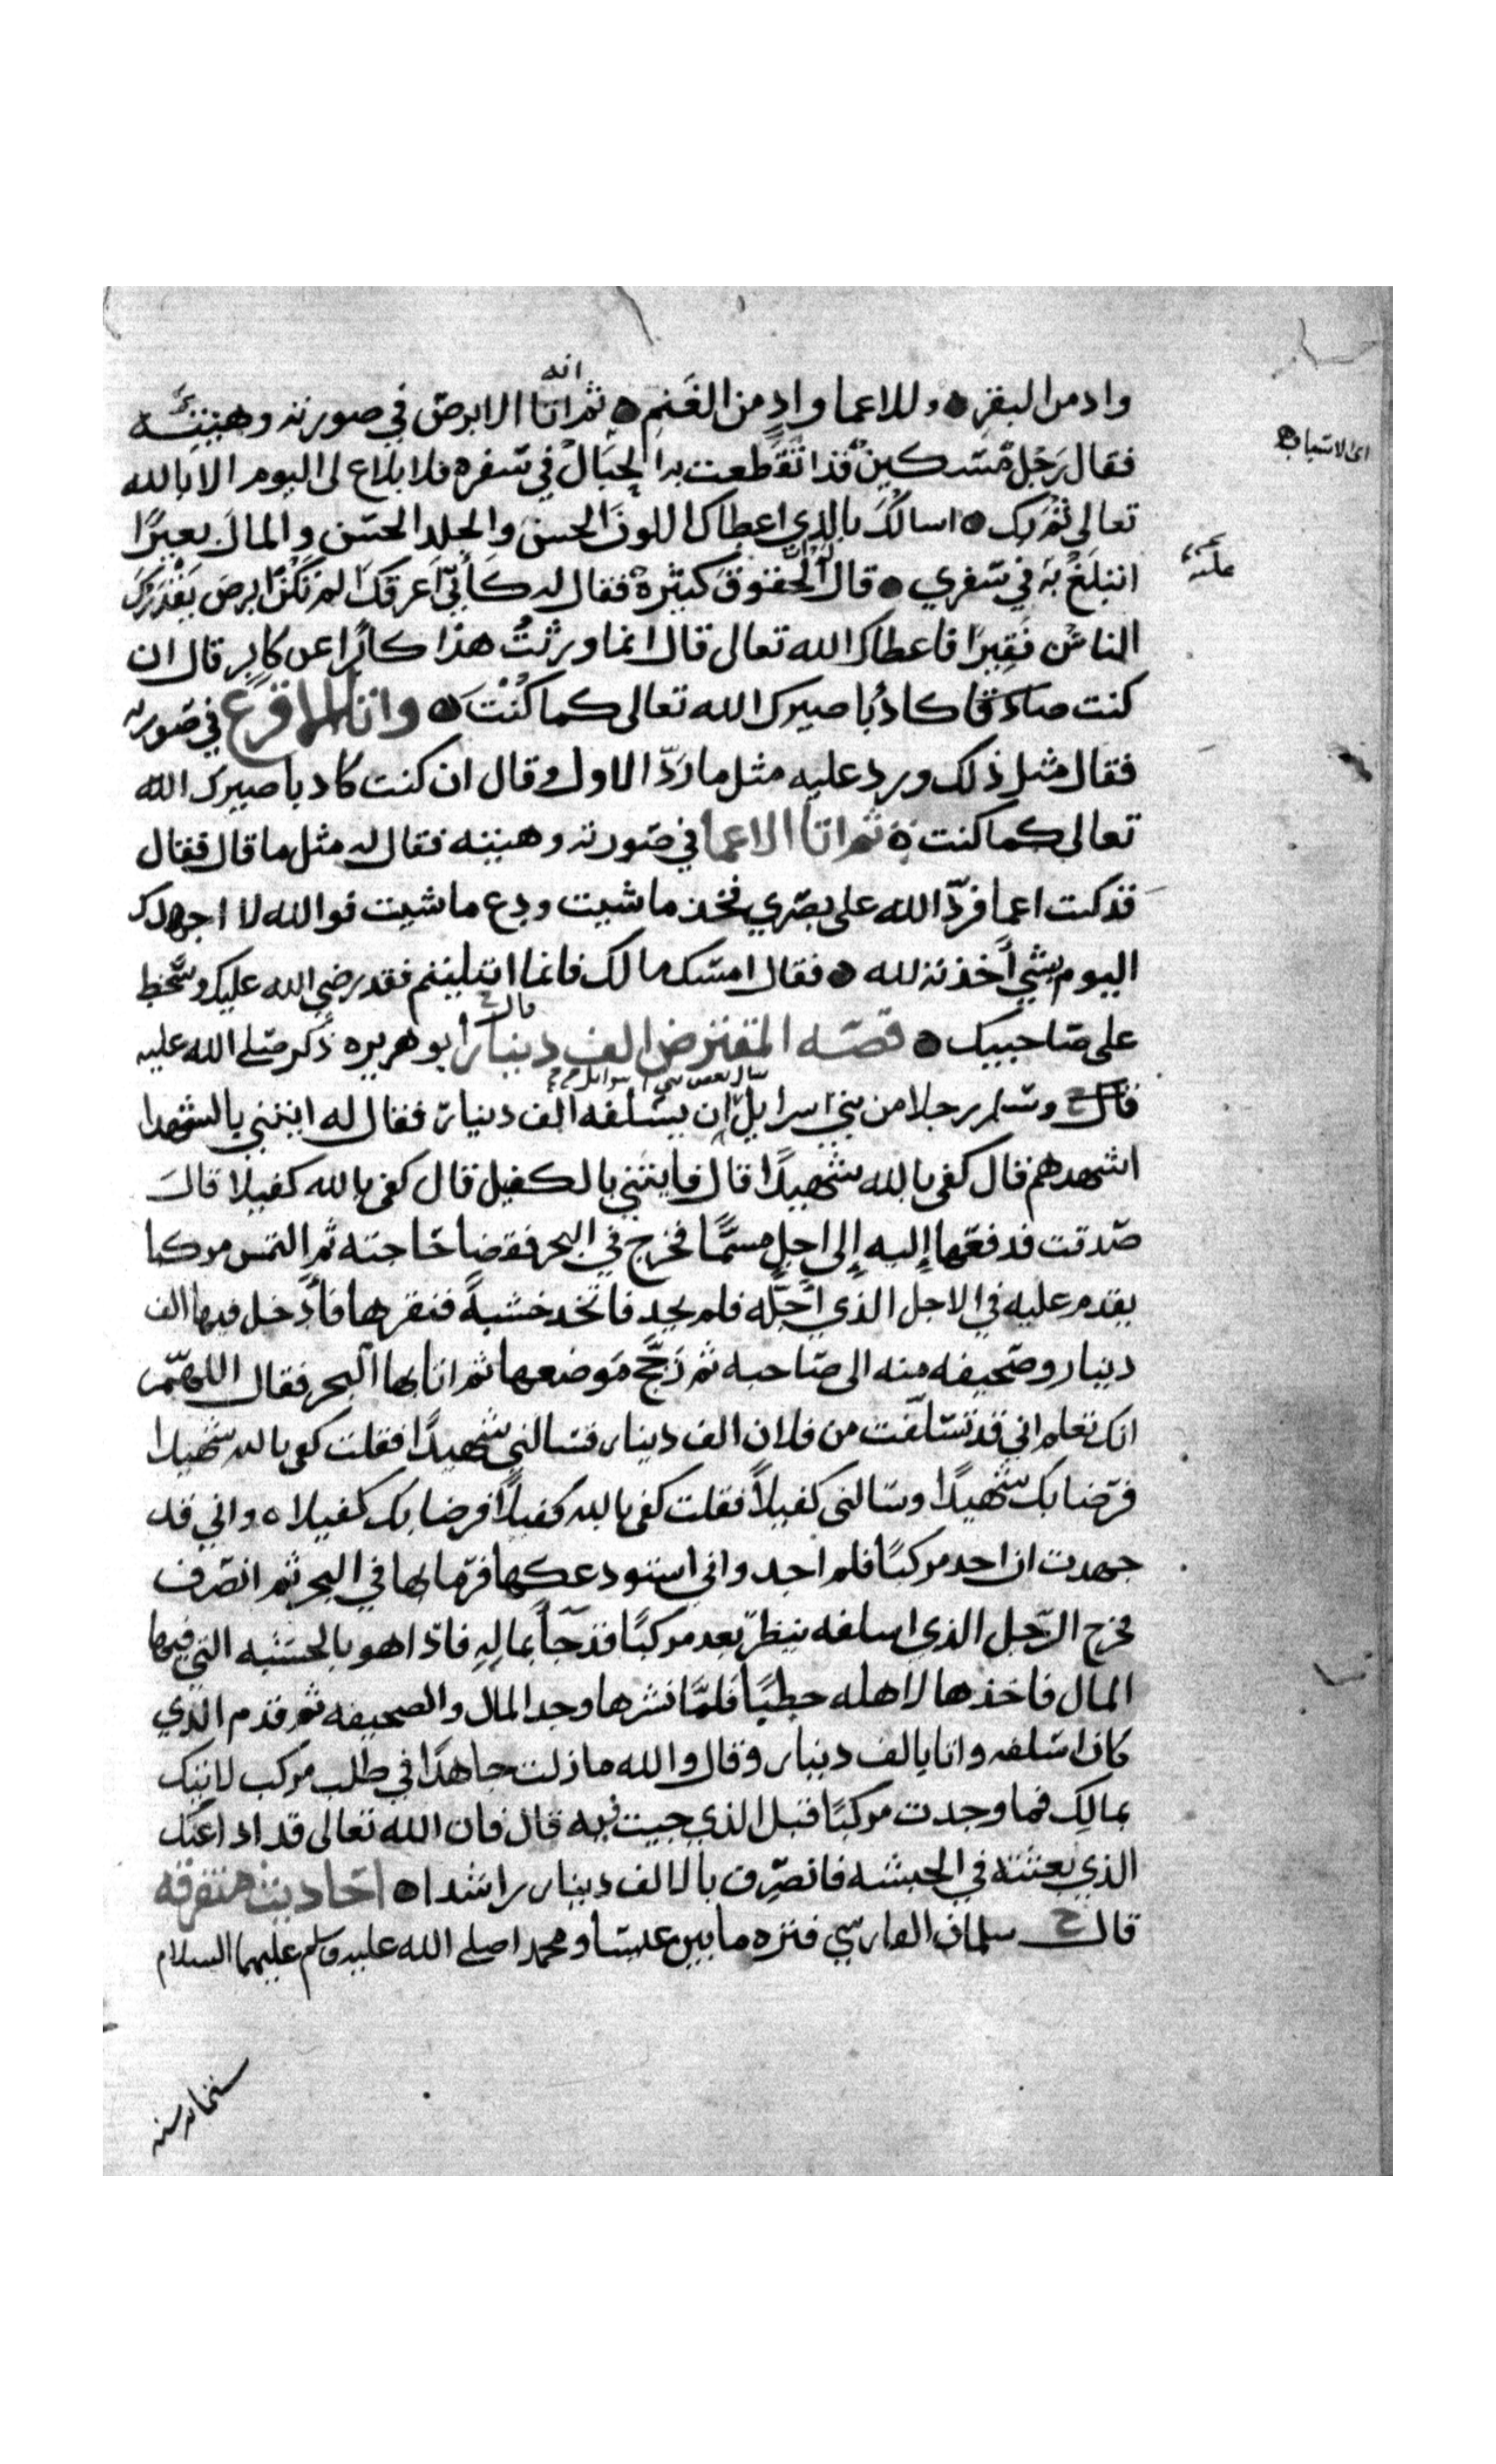 واد من البقر ۞ وللاعما واد من الغنم ۞ ثم انه اتا الابرص في صورته وهيئته
فقال رجل مسكين قد انقطعت به الحبال في سفره فلا بلاغ لى اليوم الا بالله
اى الاسباب
تعالى ثم بك ۞ اسالك بالذي اعطاك اللون الحسن والجلد الحسن والمال بعيرا
اتبلغ به في سفري ۞ قال الحقوق كثيرة فقال له كأني اعرفك الم تكن ابرص يقذرك
عليه
الناس فقيرا فاعطاك الله تعالى قال انما ورثت هذا كابرا عن كابر قال ان
كنت صادقا كاذبا صيرك الله تعالى كما كنت ۞ واتا الاقرع في صورته
فقال مثل ذلك ورد عليه مثل ما رد الاول وقال ان كنت كاذبا صيرك الله
تعالى كما كنت ثم اتا الاعما في صورته وهيئته فقال له مثل ما قال فقال
قد كنت اعما فرد الله على بصري فخذ ما شيت ودع ما شيت فوالله لا اجهدك
اليوم بشي أخذته لله ۞ فقال امسك مالك فانما ابتليتم فقد رضي الله عليك وسخط
على صاحبيك ۞ قصه المقترض الف دينار قال ابو هريره ذكر صلى الله عليه
وسلم رجلا من بني اسرايل ان يسلفه الف دينار فقال له ايتني بالشهدا
اشهدهم قال كفى بالله شهيدا قال فايتني بالكفيل قال كفى بالله كفيلا قال
صدقت فدفعها إليه إلى اجل مسما فخرج في البحر فقضا حاجته ثم التمس مركبا
يقدم عليه في الاجل الذي اجله فلم يجد فاتخذ خشبة فنقرها فأدخل فيها الف
دينار وصحيفه منه الى صاحبه ثم زجج موضعها ثم اتا بها البحر فقال اللهم
انك تعلم اني قد تسلفت من فلان الف دينار فسالني شهيدا فقلت كفى بالله شهيدا
فرضا بك شهيدا وسالنى كفيلا فقلت كفى بالله كفيلا فرضا بك كفيلا ۞ واني قد
جهدت ان اجد مركبا فلم اجد واني استودعكها فرما بها في البحر ثم انصرف
فخرج الرجل الذي اسلفه ينظر بعد مركبا قد جا بماله فاذا هو بالخشبه التي فيها
المال فاخذها لاهله حطبا فلما نشرها وجد المال والصحيفه ثم قدم الذي
كان اسلفه واتا بالف دينار وقال والله ما زلت جاهدا في طلب مركب لاتيك
بمالك فما وجدت مركبا قبل الذي جيت فيه قال فان الله تعالى قد ادا عنك
الذي بعثته في الخشبه فانصرف بالالف دينار راشدا ۞ احاديث متفرقه
قال سلمان الفارسي فتره ما بين عيسا ومحمد اصلى الله عليه وسلم عليهما السلام
ستمايه سنه